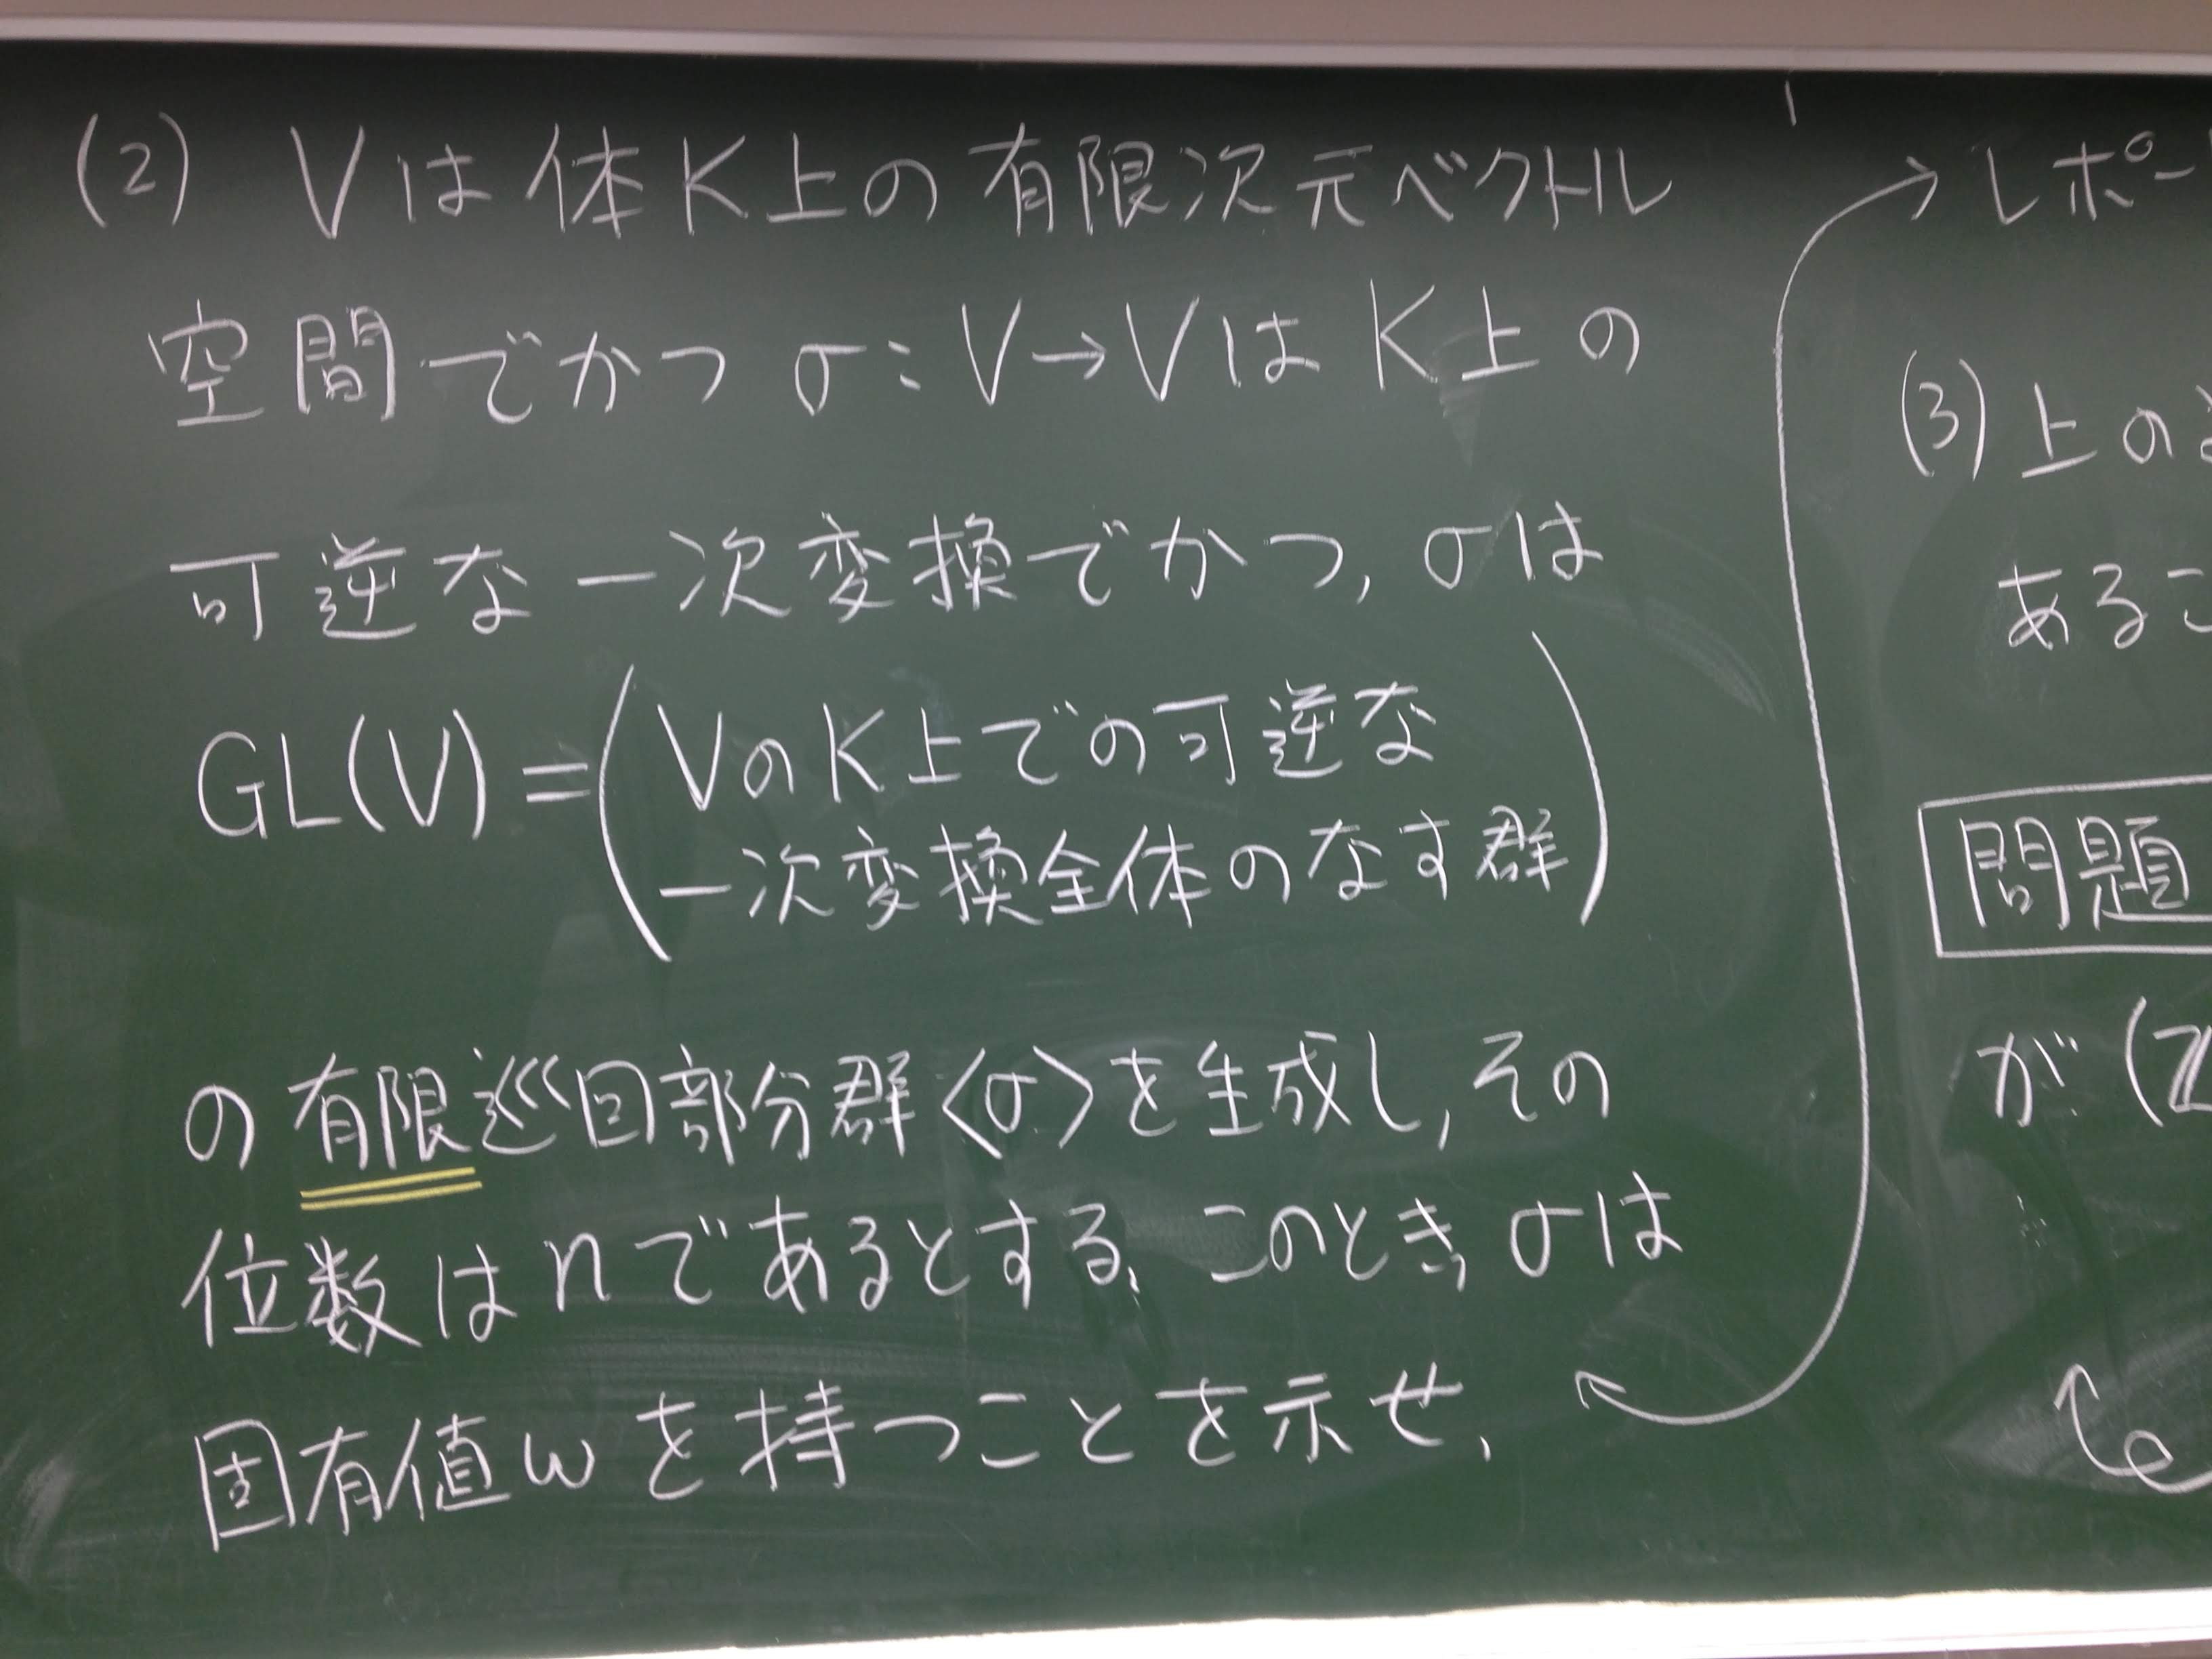 (2) Vは体K上の有限次元ベクトル
空間でかつσ:V→VはK上の
可逆な一次変換でかつ,σは
GL(V)=(VのK上での可逆な
一次変換全体のなす群)
の有限巡回部分群<σ>を生成し,その
位数はnであるとする.このとき,σは
固有値ωを持つことを示せ.
→レポー
(3)上の
あるこ
問題
が(Z